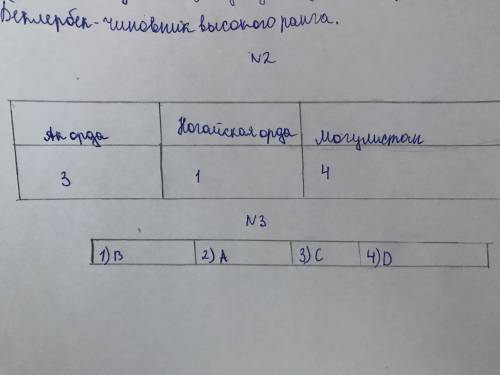 Беклербек - чиновник высокого ранга.
N2
Ак орда Ногайская орда Могулистан
3 1 4
N3
1) B 2) A 3) C 4) D